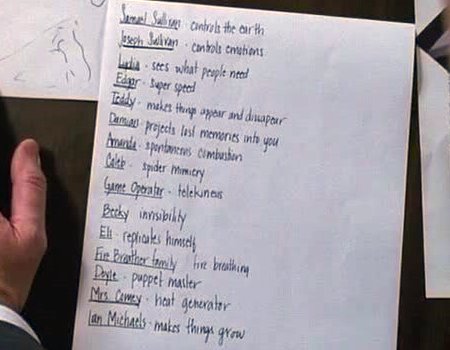 Samuel Sullivan - controls the earth
Joseph Sullivan - controls emotions
Lydia - sees what people need
Edgar - super speed
Teddy - makes things appear and disappear
Damian - projects lost memories into you
Amanda - spontaneous combustion
Caleb - spider mimicry
Game Operator - telekinesis
Becky invisibility
Eli - replicates himself
Fire Breather family fire breathing
Doyle - puppet master
Mrs. Comey - heat generator
Ian Michaels - makes things grow